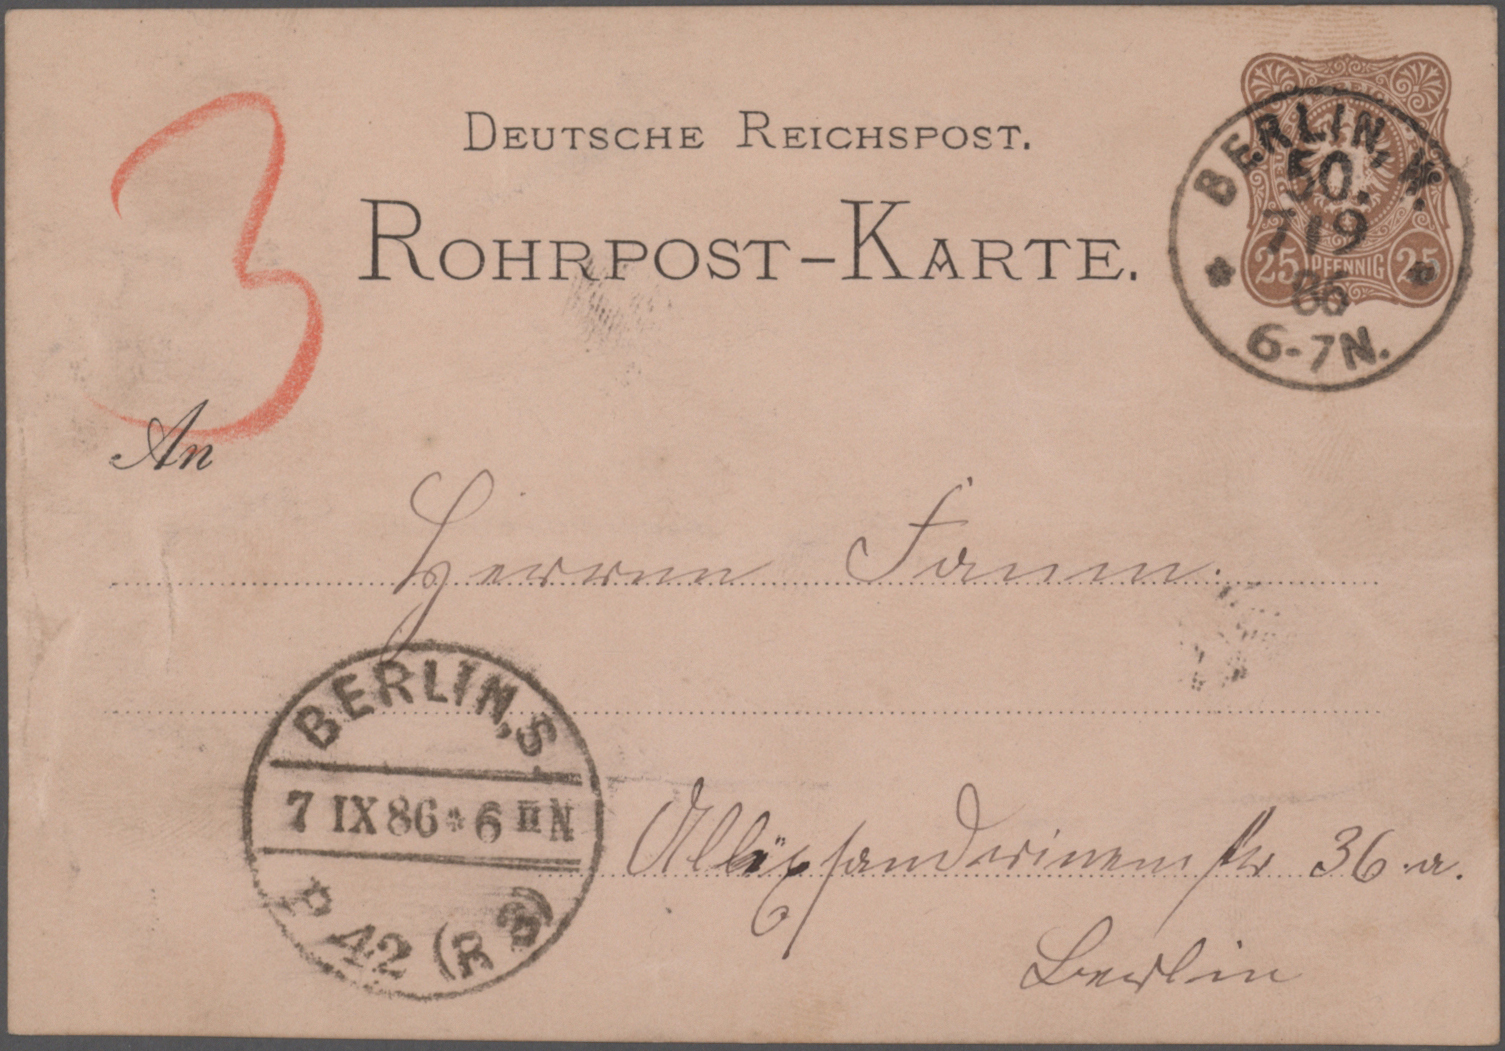 3
DEUTSCHE REICHSPOST.
ROHRPOST-KARTE.
BERLIN, W.
50.
7 / 9
86
6-7N.
25 PFENNIG 25
An
Herrn
BERLIN, S.
7 IX 86 * 6 II N
P 42 (R 3)
36 a.
Berlin